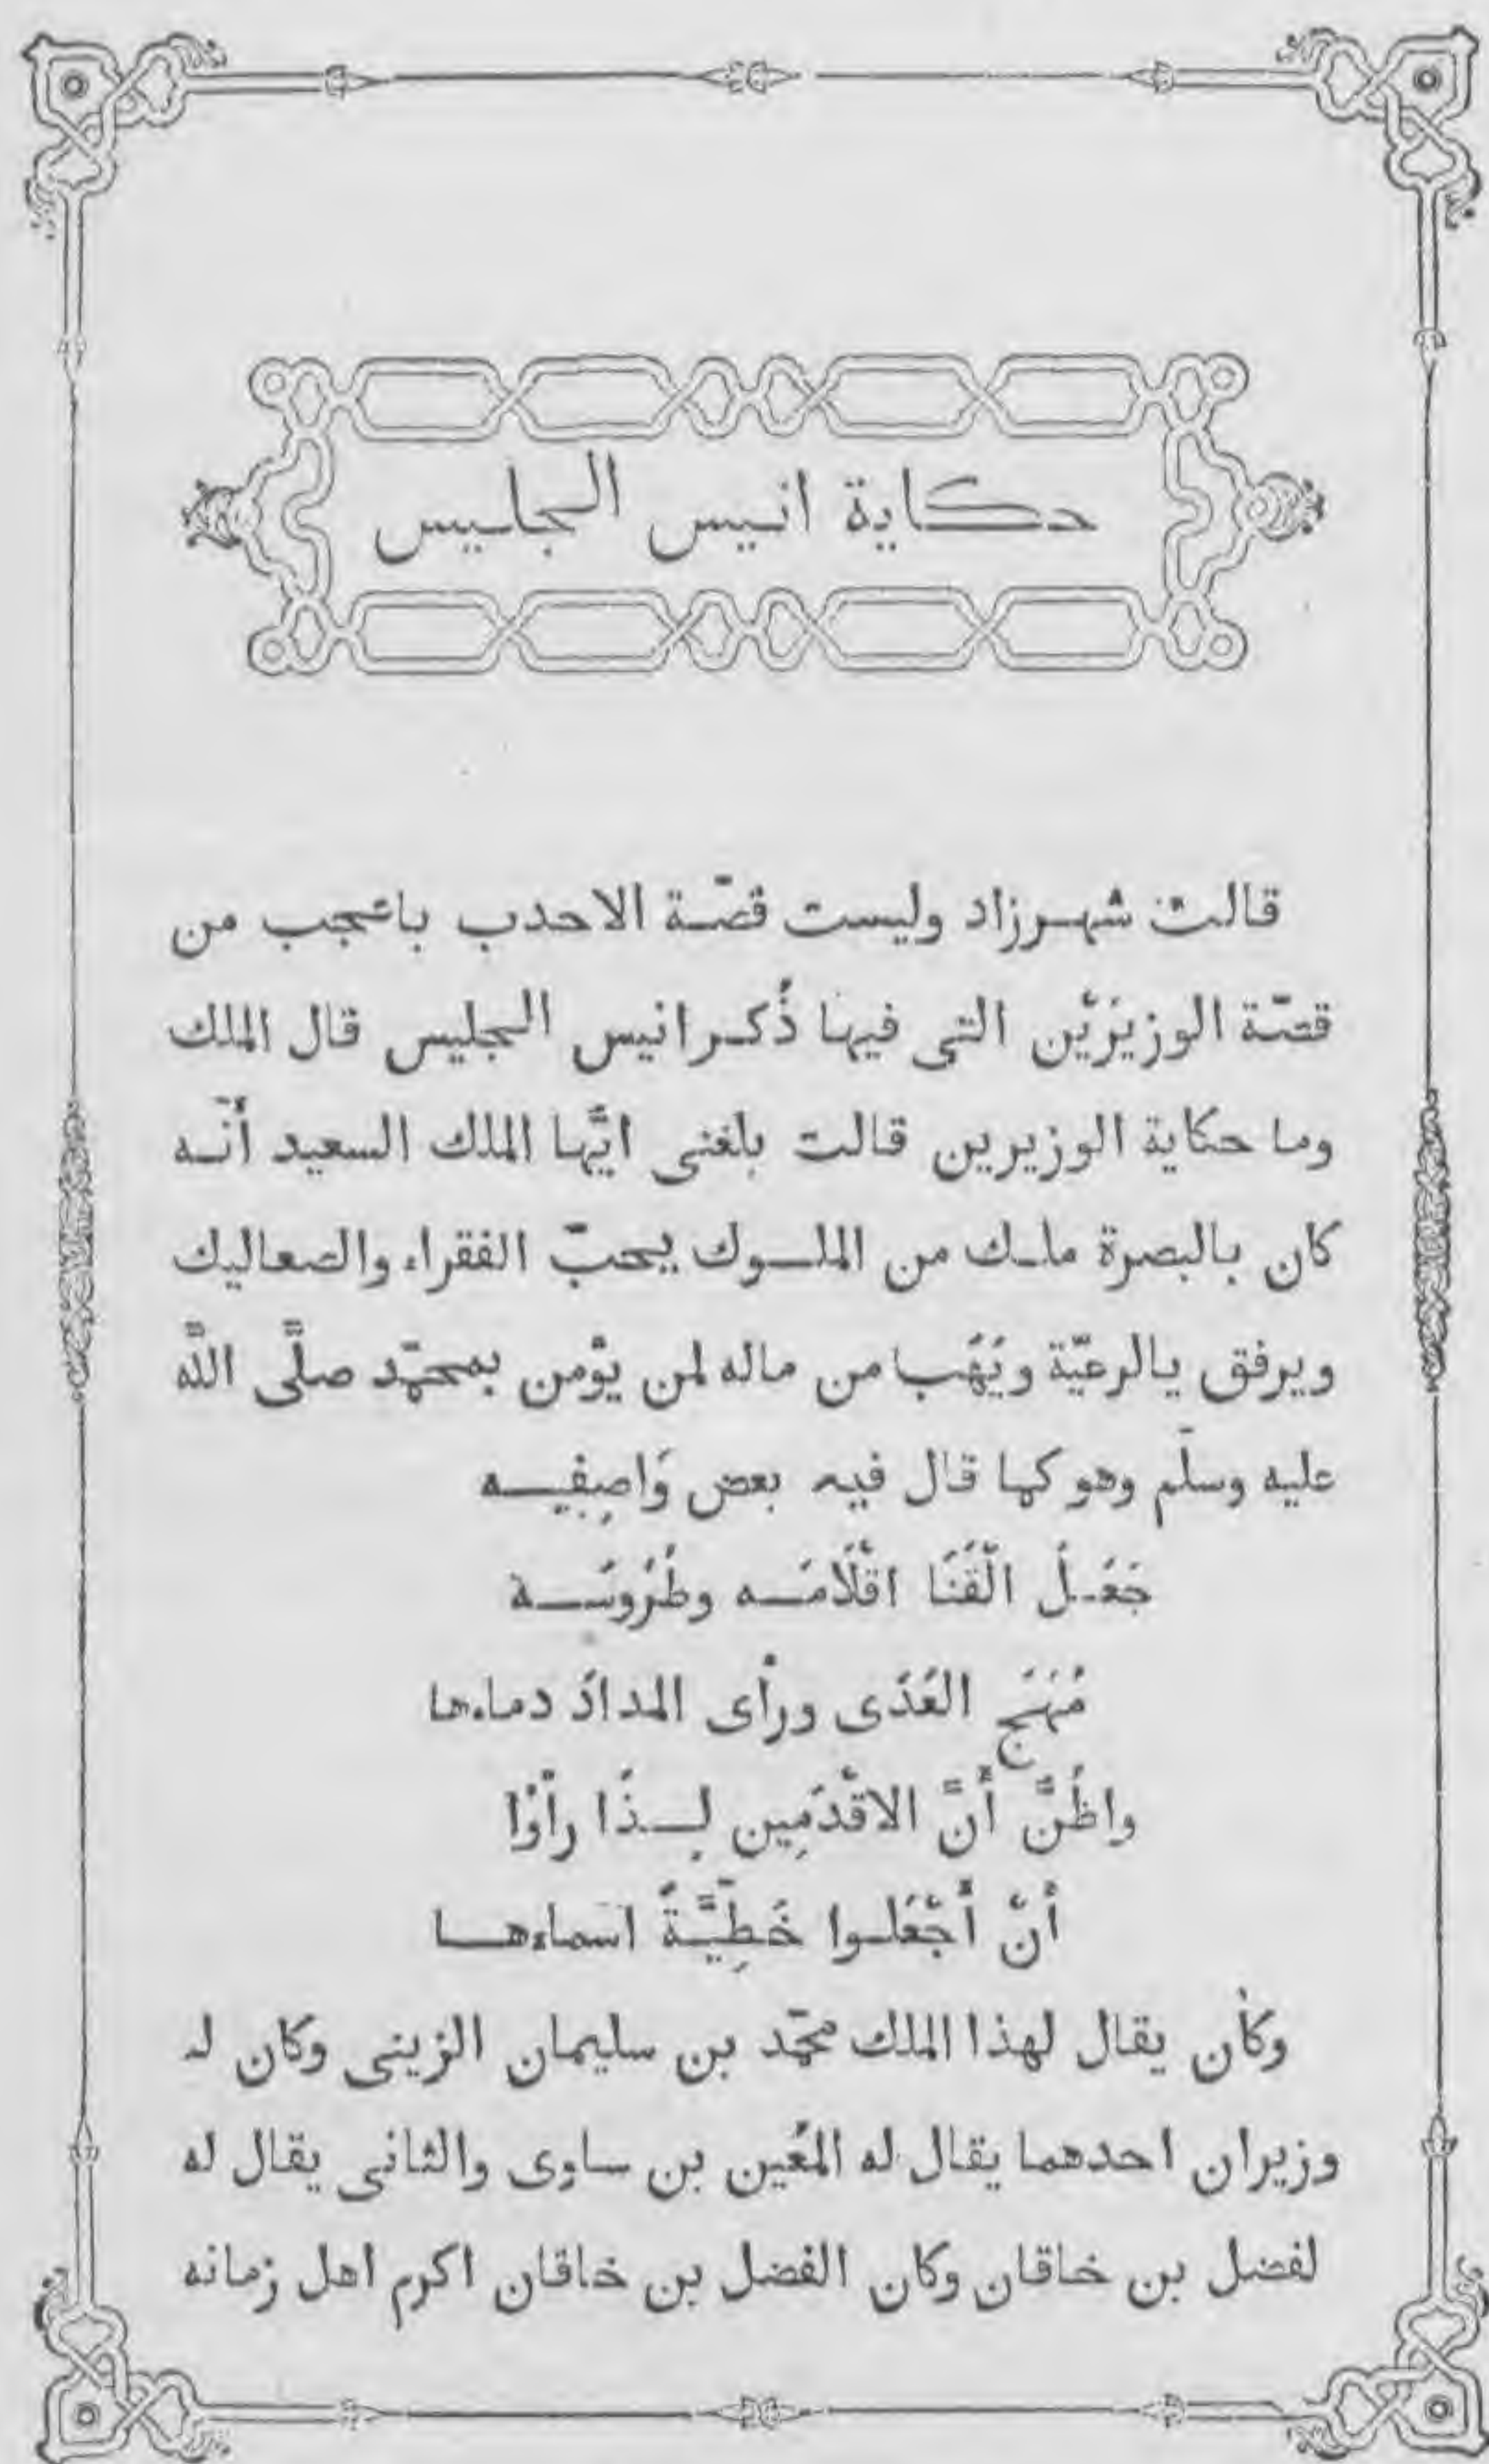 حكاية انيس الجليس
قالت شهرزاد وليست قصّة الاحدب باعجب من
قصّة الوزيرَيْن التى فيها ذُكر انيس الجليس قال الملك
وما حكاية الوزيرين قالت بلغنى ايُّها الملك السعيد أنّه
كان بالبصرة ملك من الملوك يحبّ الفقراء والصعاليك
ويرفق بالرعيّة ويَهَب من ماله لمن يؤمن بمحمّد صلَّى اللّٰه
عليه وسلّم وهو كما قال فيه بعض وَاصِفيه
جَعَلَ الْقَنَا اقْلَامَه وطُرُوسَة
مُهَجَ العَدَى ورأى المدادَ دماءها
واظُنَّ أَنَّ الاقْدَمِين لِذَا رأَوْا
أنْ أَجْعَلوا خَطِيَّةً اسماءها
وكان يقال لهذا الملك محمّد بن سليمان الزينى وكان له
وزيران احدهما يقال له المُعين بن ساوى والثانى يقال له
لفضل بن خاقان وكان الفضل بن خاقان اكرم اهل زمانه